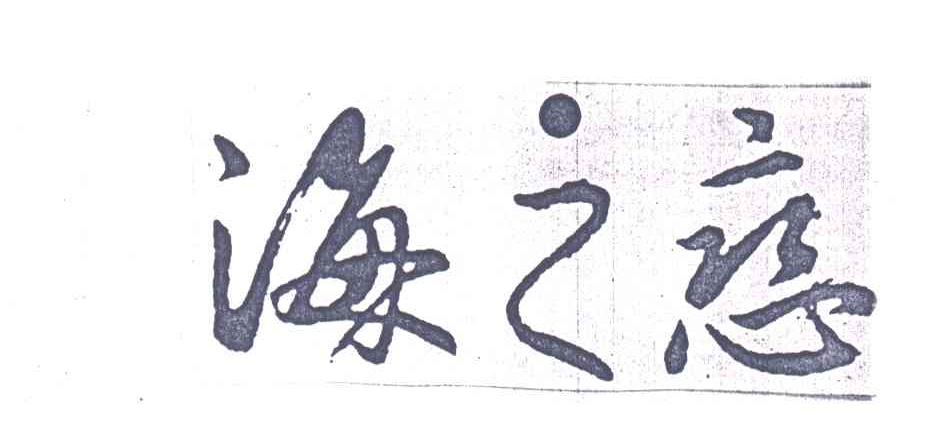 海之恋